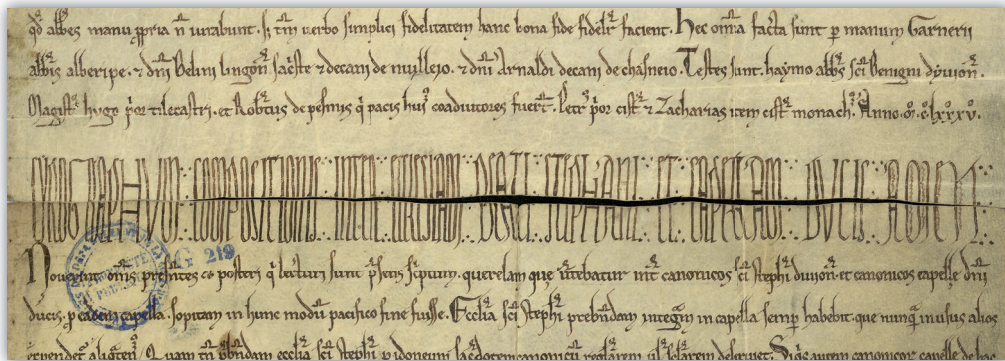 qd abbes manu ppria n̄ iurabunt. sʒ tm̄ uerbo simplici fidelitatem hanc bona fide fidelr̄ facient. Hec om̄ia facta sunt p manum Garnerii
abb̄is alberipe. ⁊ dn̄i Belini lingon̄ decani de ⁊ dn̄i Arnaldi decani de chasneio. Testes sunt. haymo abb̄s sc̄i Benigni diuion̄.
Magist̄ hugo p̄or tilecastri. et Rob̄tus de q̄ pacis hui᷒ coadiutores fuer̄t. Petr᷒ p̄or cist̄ ⁊ Zacharias item cist̄ monach᷒. Anno. m̊. c̊. lxxxv̊.
CYROGRAPHVM: COMPOSITIONIS: INTER: ECCLESIAM: BEATI: STEPHANI: ET: CAPELLAM: DVCIS: AMEN:
G 219
Nouerint om̄s p̄sentes ac posteri q̄ lecturi sunt p̄sens sc̄ptum. querelam que int̄ canonicos sc̄i Steph̄i diuion̄. et canonicos capelle dn̄i
ducis. p eadem capella. sopitam in hunc modū pacifico fine fuisse. Ecclia sc̄i Steph̄i prebn̄dam inteḡm in capella semp habebit. que nunq̄ in usus alios
Quam tn̄ p̄bn̄dam ecclia sc̄i Steph̄i p idoneum